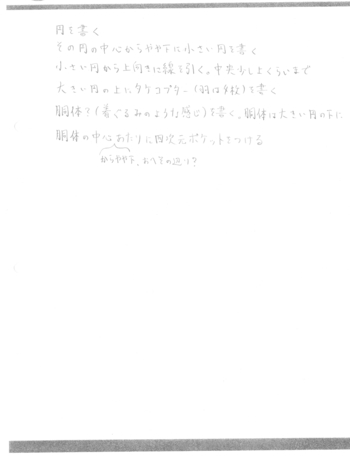 円を書く
その円の中心からやや下に小さい円を書く
小さい円から上向きに線を引く。中央少し上くらいまで
大きい円の上にタケコプター(羽は4枚)を書く
胴体?(着ぐるみのような感じ)を書く、胴体は大きい円の下に
胴体の中心あたりに四次元ポケットをつける
からやや下、おへその辺り?